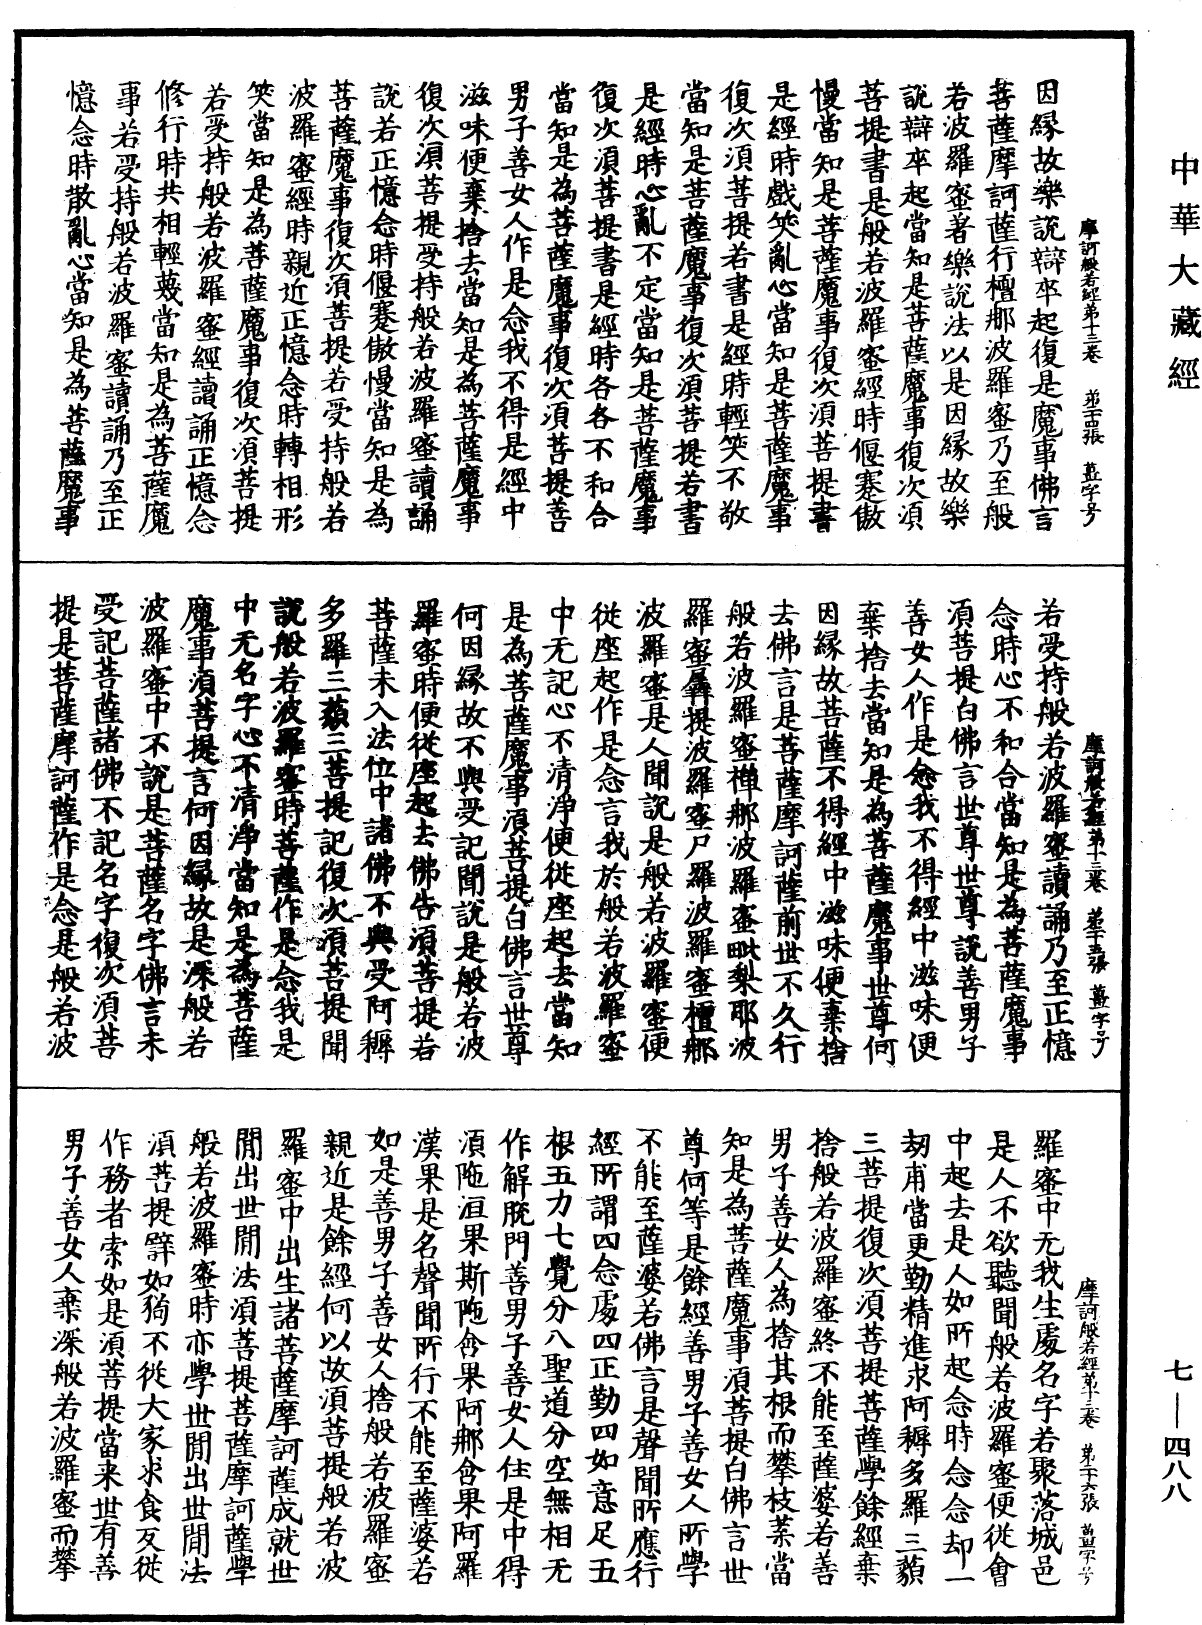 中華大藏經
摩訶般若經第十三卷　第二十四張　薑字号
因縁故樂說辯卒起復是魔事佛言
菩薩摩訶薩行檀那波羅蜜乃至般
若波羅蜜著樂說法以是因縁故樂
說辯卒起當知是菩薩魔事復次須
菩提書是般若波羅蜜經時偃蹇傲
慢當知是菩薩魔事復次須菩提書
是經時戲笑亂心當知是菩薩魔事
復次須菩提若書是經時輕笑不敬
當知是菩薩魔事復次須菩提若書
是經時心亂不定當知是菩薩魔事
復次須菩提書是經時各各不和合
當知是為菩薩魔事復次須菩提善
男子善女人作是念我不得是經中
滋味便棄捨去當知是為菩薩魔事
復次須菩提受持般若波羅蜜讀誦
說若正憶念時偃蹇傲慢當知是為
菩薩魔事復次須菩提若受持般若
波羅蜜經時親近正憶念時轉相形
笑當知是為菩薩魔事復次須菩提
若受持般若波羅蜜經讀誦正憶念
修行時共相輕蔑當知是為菩薩魔
事若受持般若波羅蜜讀誦乃至正
憶念時散亂心當知是為菩薩魔事
摩訶般若經第十三卷　第二十五張　薑字号
若受持般若波羅蜜讀誦乃至正憶
念時心不和合當知是為菩薩魔事
須菩提白佛言世尊世尊說善男子
善女人作是念我不得經中滋味便
棄捨去當知是為菩薩魔事世尊何
因縁故菩薩不得經中滋味便棄捨
去佛言是菩薩摩訶薩前世不久行
般若波羅蜜禪那波羅蜜毗梨耶波
羅蜜羼提波羅蜜尸羅波羅蜜檀那
波羅蜜是人聞說是般若波羅蜜便
從座起作是念言我於般若波羅蜜
中无記心不清淨便從座起去當知
是為菩薩魔事須菩提白佛言世尊
何因縁故不與受記聞說是般若波
羅蜜時便從座起去佛告須菩提若
菩薩未入法位中諸佛不與受阿耨
多羅三藐三菩提記復次須菩提聞
說般若波羅蜜時菩薩作是念我是
中无名字心不清淨當知是為菩薩
魔事須菩提言何因縁故是深般若
波羅蜜中不說是菩薩名字佛言未
受記菩薩諸佛不記名字復次須菩
提是菩薩摩訶薩作是念是般若波
摩訶般若經第十三卷　第二十六張　薑字号
羅蜜中无我生處名字若聚落城邑
是人不欲聽聞般若波羅蜜便從會
中起去是人如所起念時念念却一
劫甫當更勤精進求阿耨多羅三藐
三菩提復次須菩提菩薩學餘經棄
捨般若波羅蜜終不能至薩婆若善
男子善女人為捨其根而攀枝葉當
知是為菩薩魔事須菩提白佛言世
尊何等是餘經善男子善女人所學
不能至薩婆若佛言是聲聞所應行
經所謂四念處四正勤四如意足五
根五力七覺分八聖道分空無相无
作解脫門善男子善女人住是中得
須陁洹果斯陁含果阿那含果阿羅
漢果是名聲聞所行不能至薩婆若
如是善男子善女人捨般若波羅蜜
親近是餘經何以故須菩提般若波
羅蜜中出生諸菩薩摩訶薩成就世
閒出世閒法須菩提菩薩摩訶薩學
般若波羅蜜時亦學世閒出世閒法
須菩提譬如狗不從大家求食反從
作務者索如是須菩提當来世有善
男子善女人棄深般若波羅蜜而攀
七—四八八